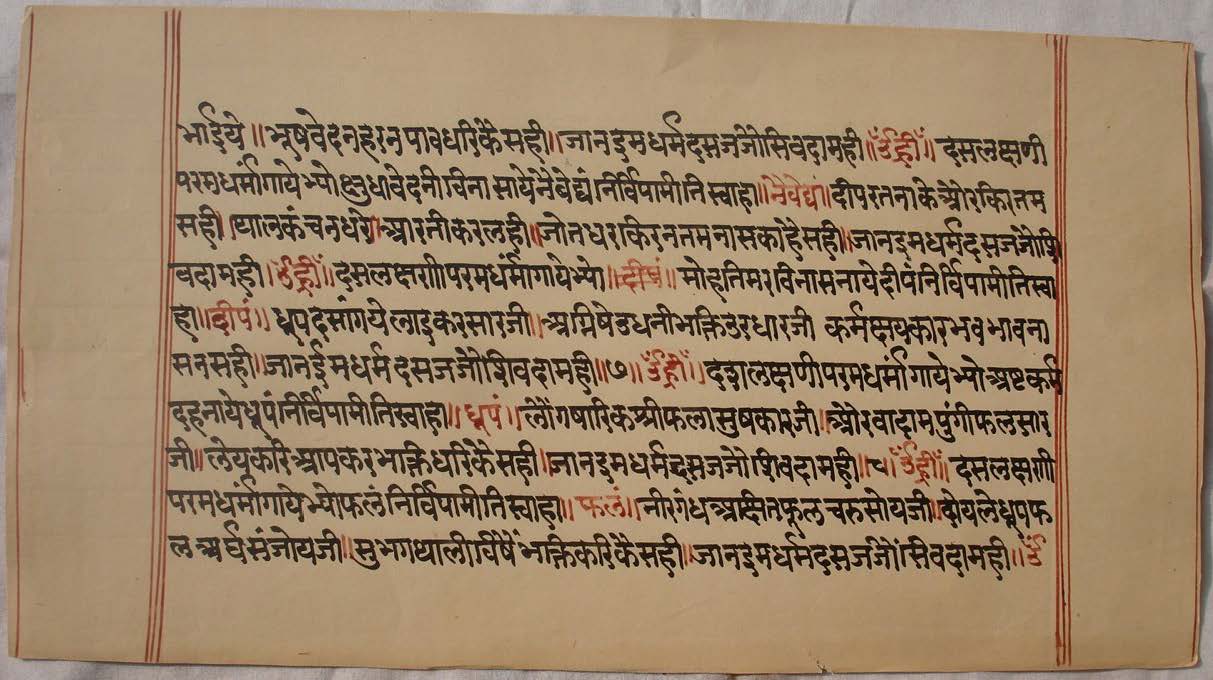 भाईये॥भूषवेदनहरनपावधरिकैसही॥जानइमधर्मदसजजोसिवदामही॥ॐह्रीँ॥दसलक्षणी
परमधर्मांगायेभ्योक्षुधावेदनीविनासायेनैवेद्यंनिर्विपामीतिस्वाहा॥नैवेद्यं॥दीपरतनाकेओरकितम
सही।थालकंचनधरोआरतीकरलही॥जोतधराकिरनतमनासकोहैसही॥जानइमधर्मदसजजोशि
वदामही॥ॐह्रीँ॥दसलक्षणीपरमधर्मांगायेभ्यो॥दीपं॥मोहतिमरविनासनायेदीपंनिर्विपामीतिस्वा
हा॥दीपं॥धूपदसांगयेलाइकरसारजी॥अग्निषेउधनीभक्तिउरधारजी कर्मक्षयकारभवभावना
सनसही॥जानईमधर्मदसजजोशिवदामही॥७॥ॐह्रीँ॥दशलक्षणीपरमधर्मांगायेभ्योअष्टकर्म
दहनायेधूपंनिर्विपामीतिस्वाहा॥धूपं॥लौंगषारिकश्रीफलासुषकारजी॥ओरवादामपुंगीफलसार
जी॥लेयकरिआपकरभक्तिधरिकैसही॥जानइमधर्मदसजजोशिवदामही॥८ॐह्रीँ॥दसलक्षणी
परमधर्मांगायेभ्योफलंनिर्विपामीतिस्वाहा॥फलं॥नीरगंधआक्षितफूलचरुसोयजी॥दोयलेधूपफ
लअर्घसंजोयजी॥सुभगथालीविषैंभक्तिकरिकैसही॥जानइमधर्मदसजजोंसिवदामही॥ॐ